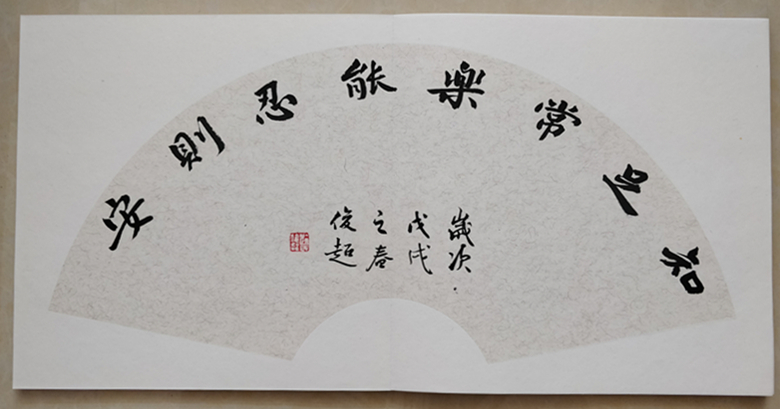 知足常樂能忍則安
歲次
戊戌
之春
俊超